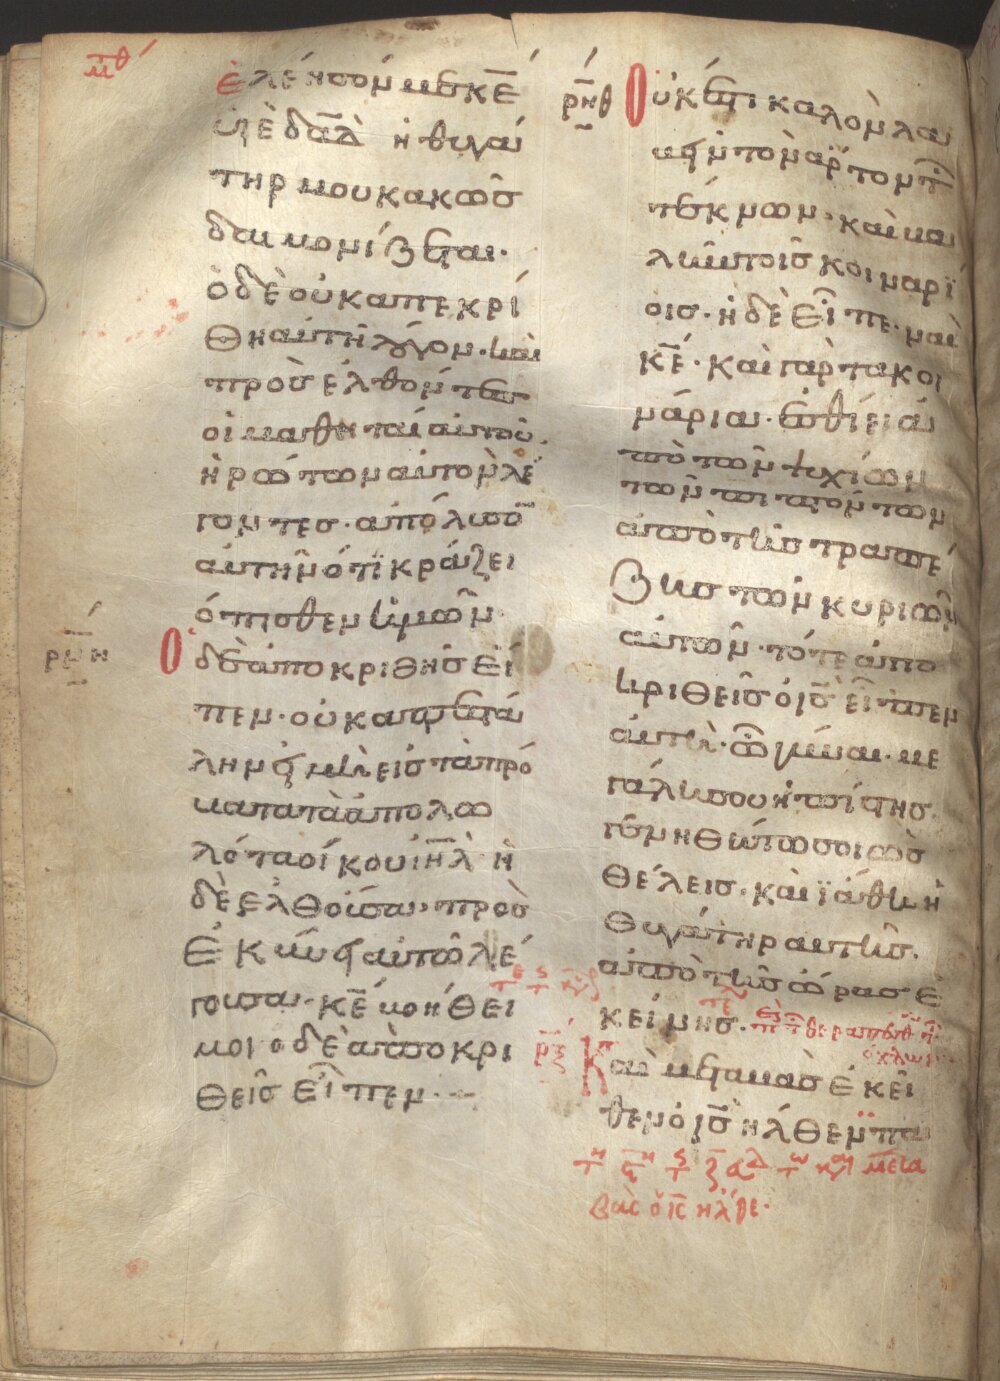 μθ
ἐλέησόμ με κε
υιὲ δαδ ἡ θυγά
τηρ μου κακῶσ
δαιμονίζεται·
ὁ δὲ οὐκ ἀπεκρί
θη αὐτῆ λόγον· καὶ
προσελθόντεσ
οἱ μαθηταί αὐτοῦ.
ἠρώτων αὐτὸν λέ
γοντεσ· ἀπόλυσο
αὐτὴν ὅτι κράζει
ὄπισθεν ἡμῶν·
ρνη
Ὁ δὲ ἀποκριθησ εἶ
πεν· οὐκ ἀπεστά
λην εἰ μὴ εἰσ τὰ πρό
βατα τὰ ἀπολω
λότα οἴκου ιηλ ἡ
δὲ ἐλθοῦσα· προσ
εκύνει αὐτῶ λέ
γουσα· κε βοήθει
μοι ὁ δὲ ἀποκρι
θεὶσ εἶπεν·
ρνθ
Οὐκ ἔστι καλὸν λα
βεῖν τὸν ἄρτον τῶ
τέκνων· καὶ βα
λεῖν τοῖσ κοιναρί
οισ· ἡ δὲ εἶπε· ναὶ
κε· καὶ γὰρ τα κοι
νάρια· ἐσθίει ἀ
πὸ τῶν ψυχίων
τῶν πιπτόντων
ἀπὸ τῆσ τραπέ
ζησ τῶν κυριῶν
αὐτῶν· τότε ἀπο
κριθεὶσ ὁ ισ εἶπεν
αὐτῆ· ὦ γύναι· με
γάλη σου ἡ πίστησ·
γενηθήτω σοι ὡσ
θέλεισ· καὶ ἰάθη ἡ
θυγάτηρ αὐτῆσ·
ἀπὸ τῆσ ὥρασ ἐ
κείνησ·
ρξ
Καὶ μεταβὰσ ἐκεῖ
θεν ὁ ισ ἦλθεν πα
βὰς ὁ ις ηλθε·